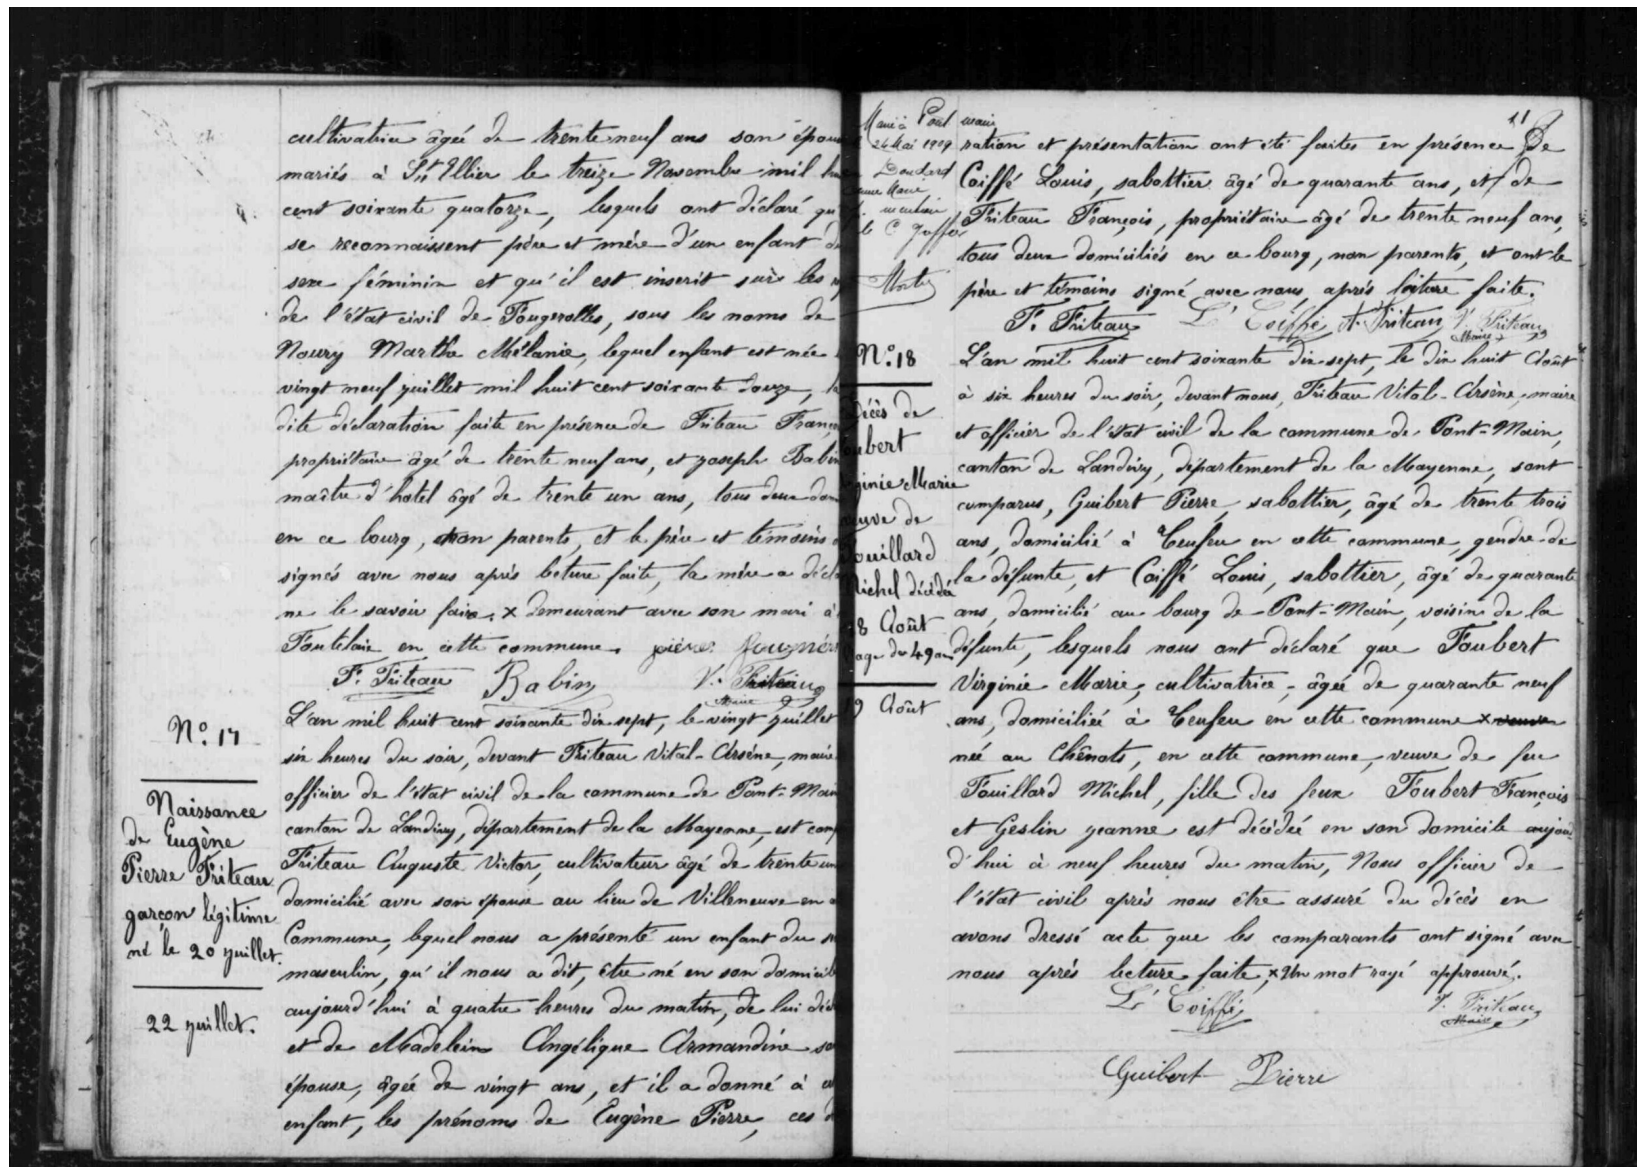 cultivatrice âgée de trente neuf ans son épou
mariés à St Ellier le treize Novembre mil hu
cent soixante quatorze, lesquels ont déclaré qu
se reconnaissent père et mère d'un enfant d
sexe féminin et qu'il est inscrit sur les
de l'état civil de Fougerolles, sous les noms de
Noury Martha Mélanie, lequel enfant est née
vingt neuf juillet mil huit cent soixante douze, la
dite déclaration faite en présence de Friteau Franç
propriétaire âgé de trente neuf ans, et joseph Babin
maître d'hotel âgé de trente un ans, tous deux dom
en ce bourg, non parents, et le père et témoins
signés avec nous après lecture faite, la mère a décl
ne le savoir faire. x demeurant avec son mari à
Foutelaie en cette commune.
F. Friteau Babin V. Friteau
Maire
No. 17
Naissance
de Eugène
Pierre Friteau
garçon légitime
né le 20 juillet.
22 juillet.
L'an mil huit cent soixante dix sept, le vingt juillet
six heures du soir, devant Friteau Vital-Arsène, maire
officier de l'état civil de la commune de Pont-Main
canton de Landivy, département de la Mayenne, est comp
Friteau Auguste Victor, cultivateur âgé de trente un
domicilié avec son épouse au lieu de Villeneuve en
Commune, lequel nous a présenté un enfant du s
masculin, qu'il nous a dit, être né en son domicil
aujourd'hui à quatre heures du matin, de lui décl
et de Madelein Angélique Armandine so
épouse, âgée de vingt ans, et il a donné à
enfant, les prénoms de Eugène Pierre, ces d
Marié à Pont main
24 Mai 1909
mention
11
ration et présentation ont été faites en présence de
Coiffé Louis, sabottier âgé de quarante ans, et de
Friteau François, propriétaire âgé de trente neuf ans,
tous deux domiciliés en ce bourg, non parents, et ont le
père et témoins signé avec nous, après lecture faite.
F. Friteau L. Coiffé A. Friteau V. Friteau
Maire
No. 18
Décès de
oubert
ginie Marie
euve de
Fouillard
Michel décédée
18 Août
age de 49 ans
19 Août
L'an mil huit cent soixante dix-sept, le dix huit Août
à six heures du soir, devant nous, Friteau Vital-Arsène, maire
et officier de l'état civil de la commune de Pont-Main,
canton de Landivy, département de la Mayenne, sont
comparus, Guibert Pierre, sabottier, âgé de trente trois
ans, domicilié à Teufeu en cette commune, gendre de
la défunte, et Coiffé Louis, sabottier, âgé de quarante
ans, domicilié au bourg de Pont-Main, voisin de la
défunte, lesquels nous ont déclaré que Foubert
Virginie Marie, cultivatrice, âgée de quarante neuf
ans, domiciliée à Teufeu en cette commune x veuve
né au Chênots, en cette commune, veuve de feu
Fouillard Michel, fille des feux Foubert François
et Geslin jeanne est décédée en son domicile aujour
d'hui à neuf heures du matin, Nous officier de
l'état civil après nous être assuré du décès en
avons dressé acte que les comparants ont signé avec
nous après lecture faite, x Un mot rayé approuvé.
L. Coiffé V. Friteau
Maire
Guibert Pierre